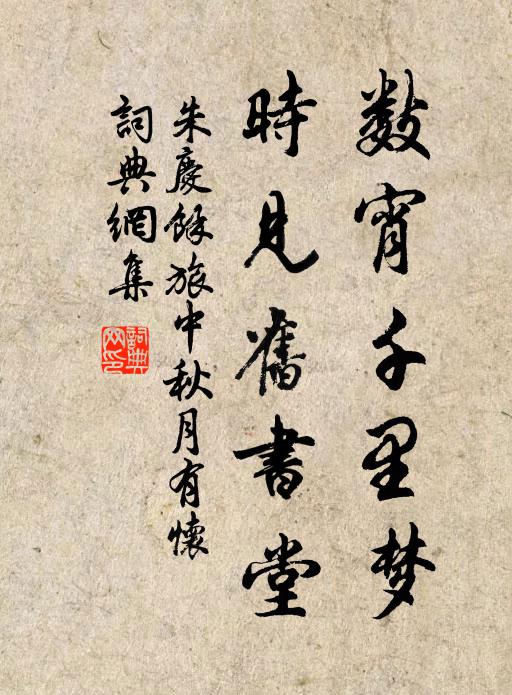 数宵千里梦
時見舊書堂
朱慶餘旅中秋月有懷
詞典網集
詞典网印